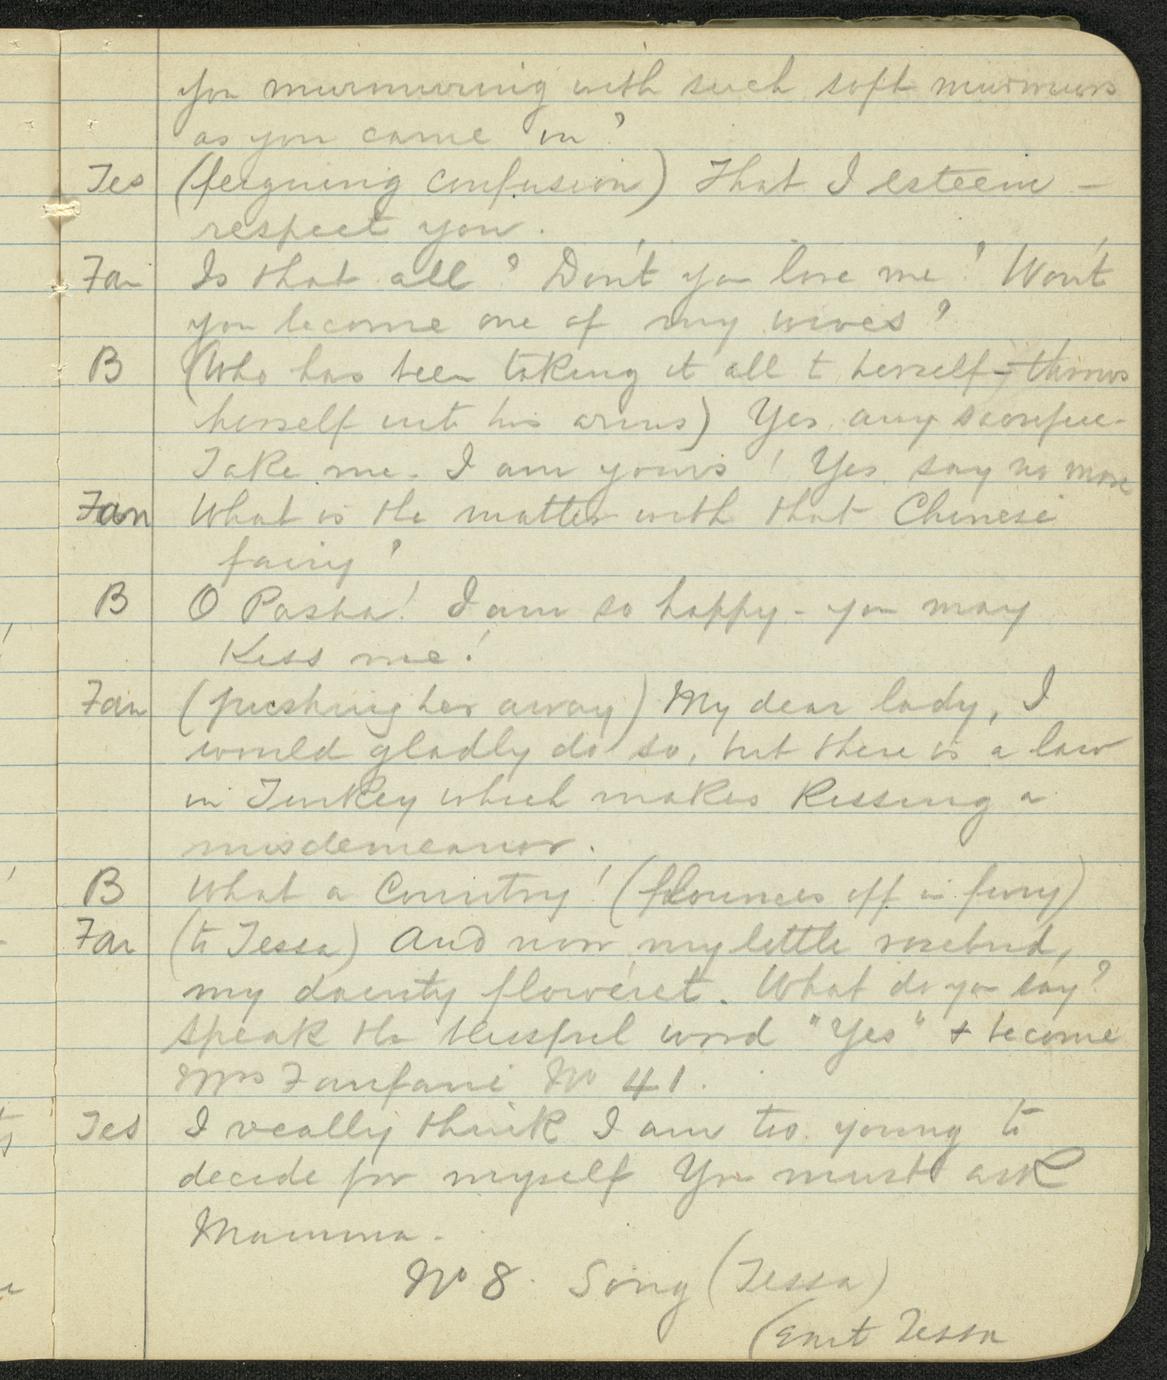 you murmuring with such soft murmurs
as you came in?
Tes (feigning confusion) That I esteem -
respect you.
Fan Is that all? Don't you love me? Won't
you become one of my wives?
B (Who has been taking it all to herself - throws
herself into his arms) Yes, any sacrifice.
Take me. I am yours! Yes say no more
Fan What is the matter with that Chinese
fairy?
B O Pasha! I am so happy - you may
Kiss me!
Fan (pushing her away) My dear lady, I
would gladly do so, but there is a law
in Turkey which makes Kissing a
misdemeanor.
B What a Country! (flounces off in fury)
Fan (to Tessa) And now my little rosebud,
my dainty floweret. What do you say?
Speak the blissful word "Yes" & become
Mrs Fanfani No 41.
Tes I really think I am too young to
decide for myself You must ask
Mamma.
No 8. Song (Tessa)
(Exit Tessa